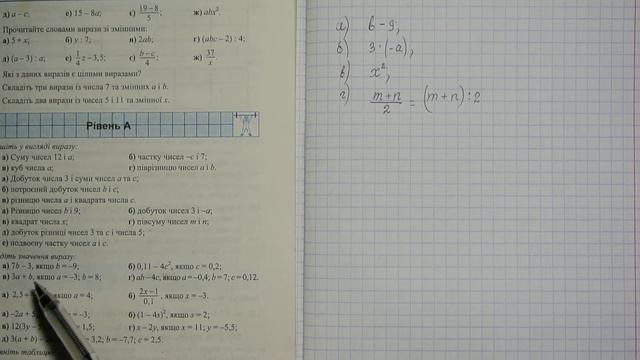 д) a – c;
е) 15 – 8a;
є) (19 – 8)/5;
ж) abx².
Прочитайте словами вирази зі змінними:
а) 5 + x;
б) y : 7;
в) 2ab;
г) (abc – 2) : 4;
д) (a – 3) : a;
е) 1/4 z – 3,5;
є) (b – c)/4;
ж) 37/x.
Які з даних виразів є цілими виразами?
Складіть три вирази із числа 7 та змінних a і b.
Складіть два вирази із чисел 5 і 11 та змінної x.
Рівень А
у вигляді виразу:
а) Суму чисел 12 і a;
б) частку чисел –c і 7;
в) куб числа a;
г) піврізницю чисел a і b.
а) Добуток числа 3 і суми чисел a та c;
б) потроєний добуток чисел b і c;
в) різницю числа a і квадрата числа c.
а) Різницю чисел b і 9;
б) добуток чисел 3 і –a;
в) квадрат числа x;
г) півсуму чисел m і n;
д) добуток різниці чисел 3 та c і числа 5;
е) подвоєну частку чисел a і c.
значення виразу:
а) 7b – 3, якщо b = –9;
б) 0,11 – 4c², якщо c = 0,2;
в) 3a + b, якщо a = –3; b = 8;
г) ab – 4c, якщо a = –0,4; b = 7; c = 0,12.
а) 2,5 якщо a = 4;
б) (2x – 1)/0,1, якщо x = –3.
а) –2a + = –3;
б) (1 – 4s)², якщо s = 2;
в) 12(3y – 1,5;
г) x – 2y, якщо x = 11; y = –5,5;
д) 3(a + b) 3,2; b = –7,7; c = 2,5.
таблицю
а) b – 9;
б) 3·(–a);
в) x²;
г) (m+n)/2 = (m+n):2